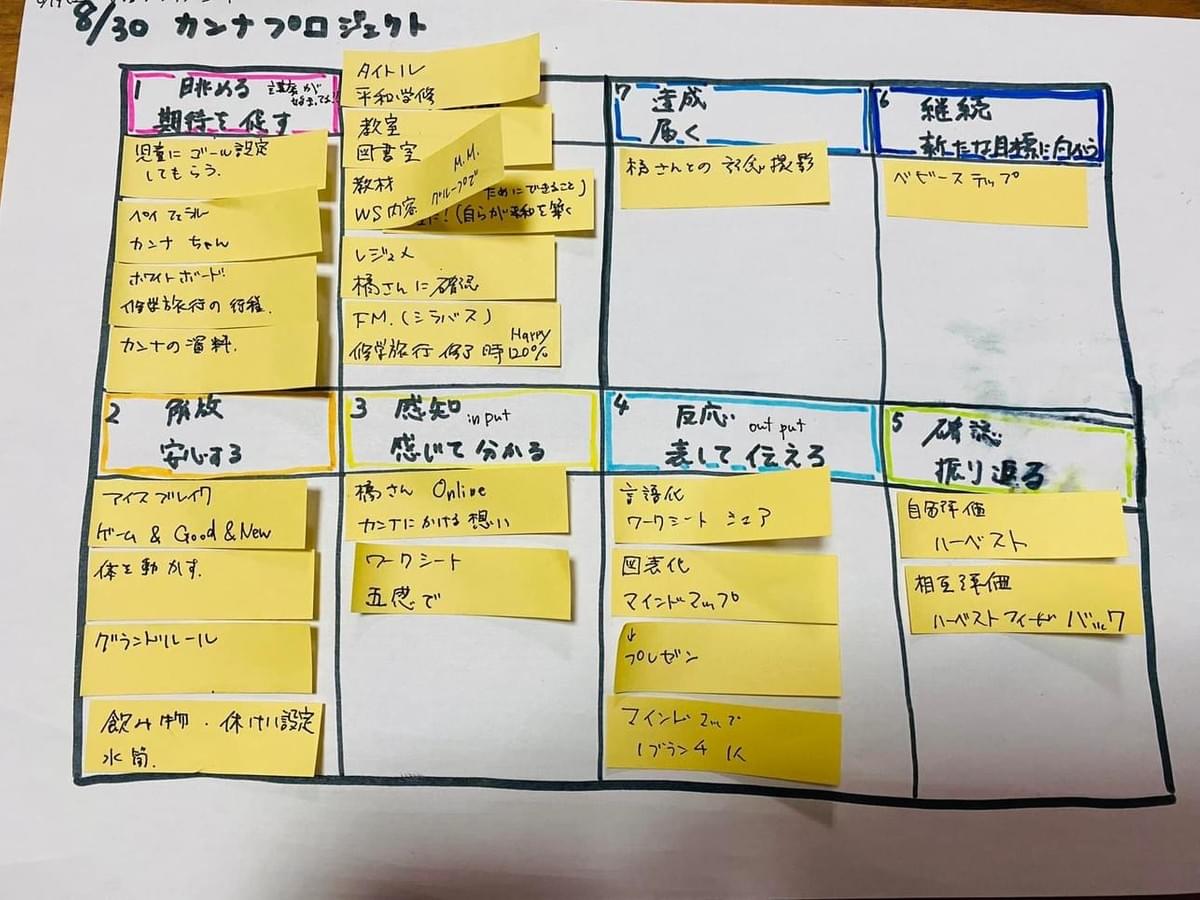 8/30 カンナプロジェクト
1 眺める
期待を促す
児童にゴール設定
してもらう.
カンナちゃん
ホワイトボード
修学旅行の行程.
カンナの資料.
タイトル
平和学修
教室
図書室
教材
WS内容
M.M.
グループで
ためにできること)
!(自らが平和を築く
レジュメ
橘さんに確認
FM.(シラバス)
修学旅行 修了時 Happy 120%
7 達成
届く
橘さんとの 記念撮影
6 継続
新たな目標に向かう
ベビーステップ
2 解放
安心する
アイスブレイク
ゲーム & Good & New
体を動かす.
グランドルール
飲み物・休けい設定
水筒.
3 感知 input
感じて分かる
橘さん Online
カンナにかける想い
ワークシート
五感で
4 反応 out put
表して伝える
言語化
ワークシート シェア
図表化
マインドマップ
↓
プレゼン
マインドマップ
1ブランチ 1人
5 確認
振り返る
自己評価
ハーベスト
相互評価
ハーベストフィードバック